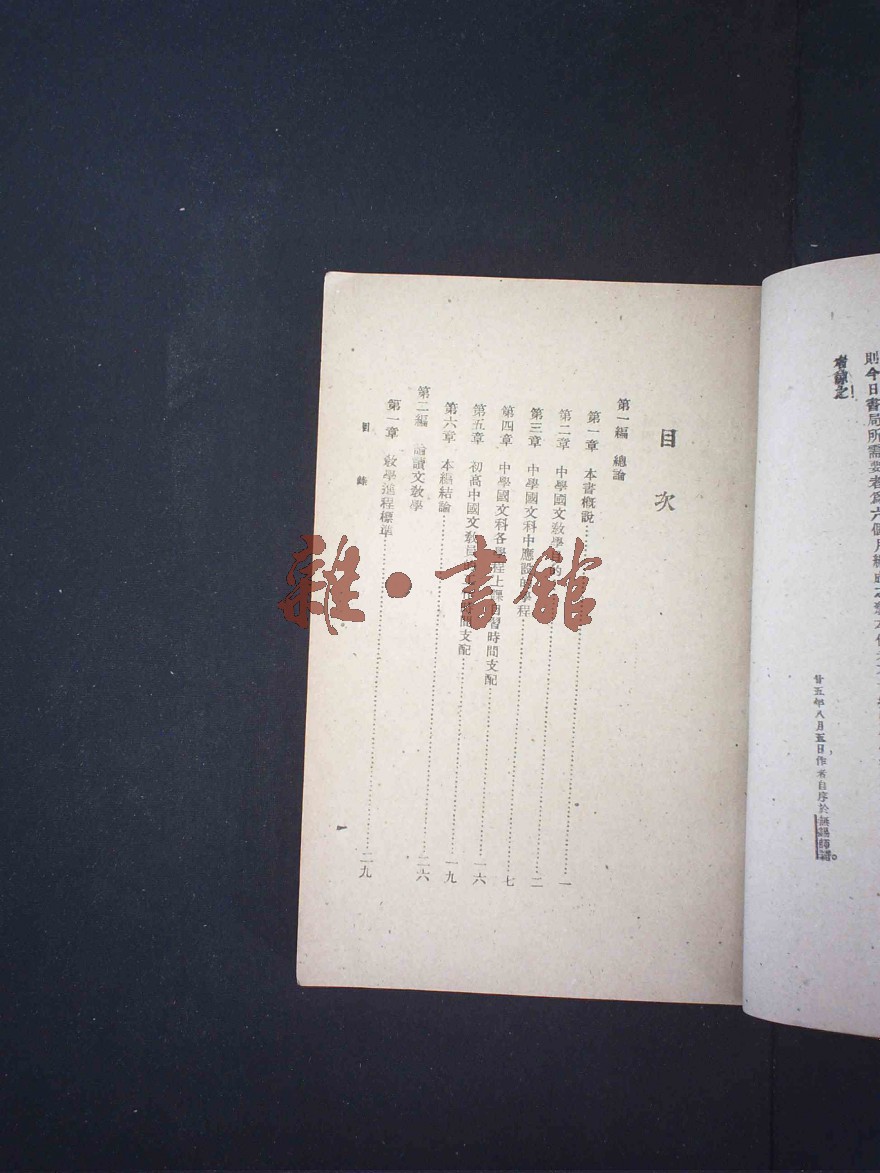 則今日書局所需要者爲六個月
者諒之！
廿五年八月五日，作者自序於無錫師範。
目次
第一編 總論
第一章 本書概說 一
第二章 中學國文教學目的 二
第三章 中學國文科中應設的學程 七
第四章 中學國文科各學程上課自習時間支配 一六
第五章 初高中國文教員 時間支配 一九
第六章 本編結論 二六
第二編 論讀文教學
第一章 教學進程標準 二九
目 錄
一
雜·書館